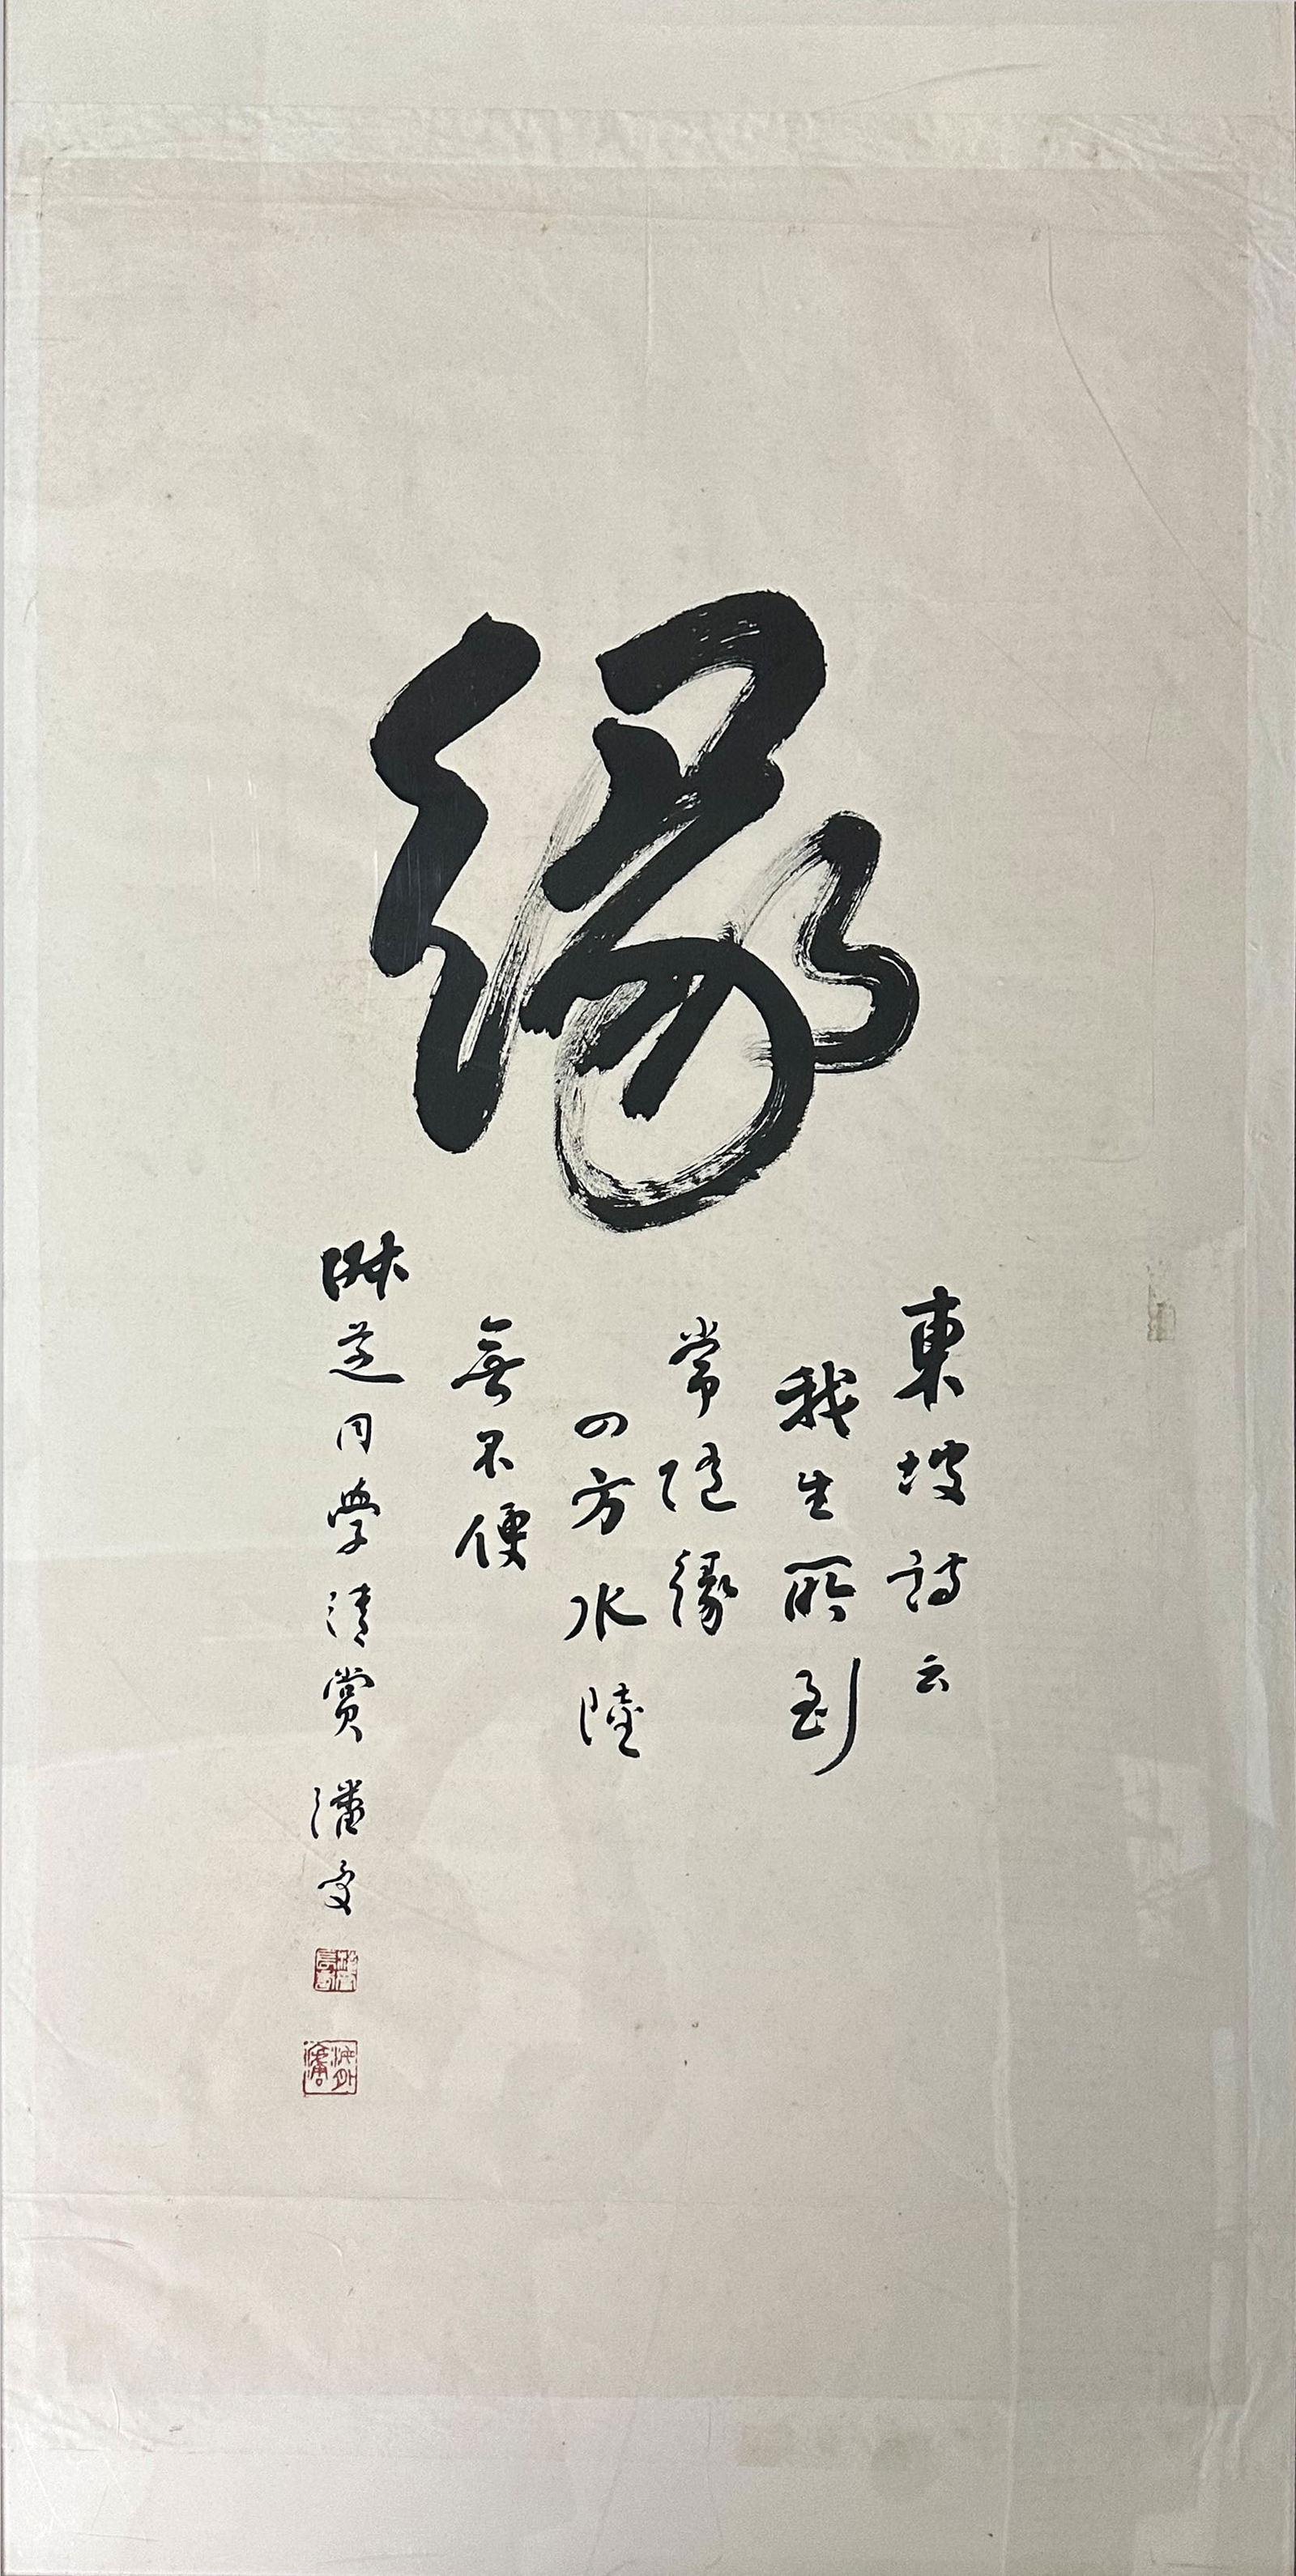 緣
東坡詩云
我生所到
常隨緣
四方水陸
無不便
芝同學清賞 潘受